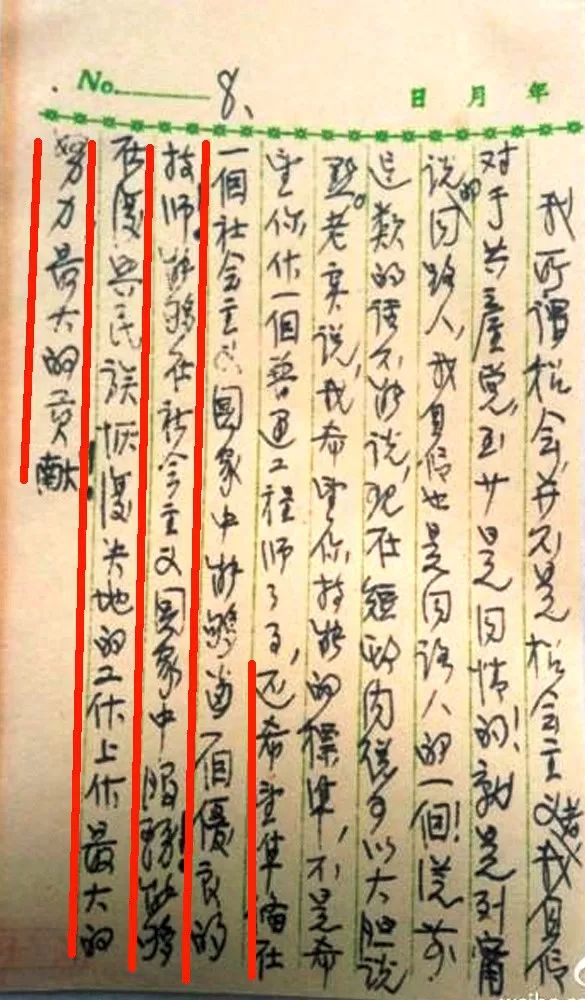 No. 8、
年 月 日
我所谓机会,并不是机会主义者,我自信
对于共產党,至少是同情的!就是列甯
说的同路人,我自信也是同路人的一個!从前
這類的话不能说,现在短期内総可以大胆说
点。老实说,我希望你技能的標準,不是希
望你作一個普通工程师了事,还希望准備在
一個社会主义國家中能够道一個優良的
技师!能够在社会主义國家中服務!能够
在復兴民族恢復失地的工作上作最大的
努力最大的贡献!